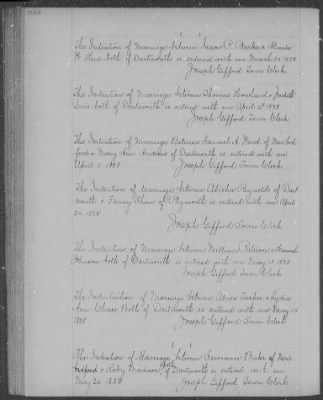 The Intention of Marriage between Isaac P. Barker &
W. Reed both of Dartmouth is entered with me March 31. 1838
Joseph Gifford Town Clerk
The Intention of Marriage between Thomas Howland & Judith
Davis both of Dartmouth is entered with me April 5th 1838
Joseph Gifford Town Clerk
The Intention of Marriage Between Samuel A. Wood of New Bed
ford & Mary Ann of Dartmouth is entered with me
April 6 1838 Joseph Gifford Town Clerk
The Intention of Marriage between Abisha Reynolds of Dart
mouth & Fanny Shaw of Plymouth is entered with me April
20. 1838
Joseph Gifford Town Clerk
The Intention of Marriage between William &
Johnson both of Dartmouth is entered with me May 13. 1838
Joseph Gifford Town Clerk
The Intention of Marriage between Abner Tucker & Lydia
Ann Chase Both of Dartmouth is entered with me May 14
1838 Joseph Gifford Town Clerk
The Intention of Marriage between Severance Baker of New
Bedford & Ruby of Dartmouth is entered with me
May 20 1838 Joseph Gifford Town Clerk